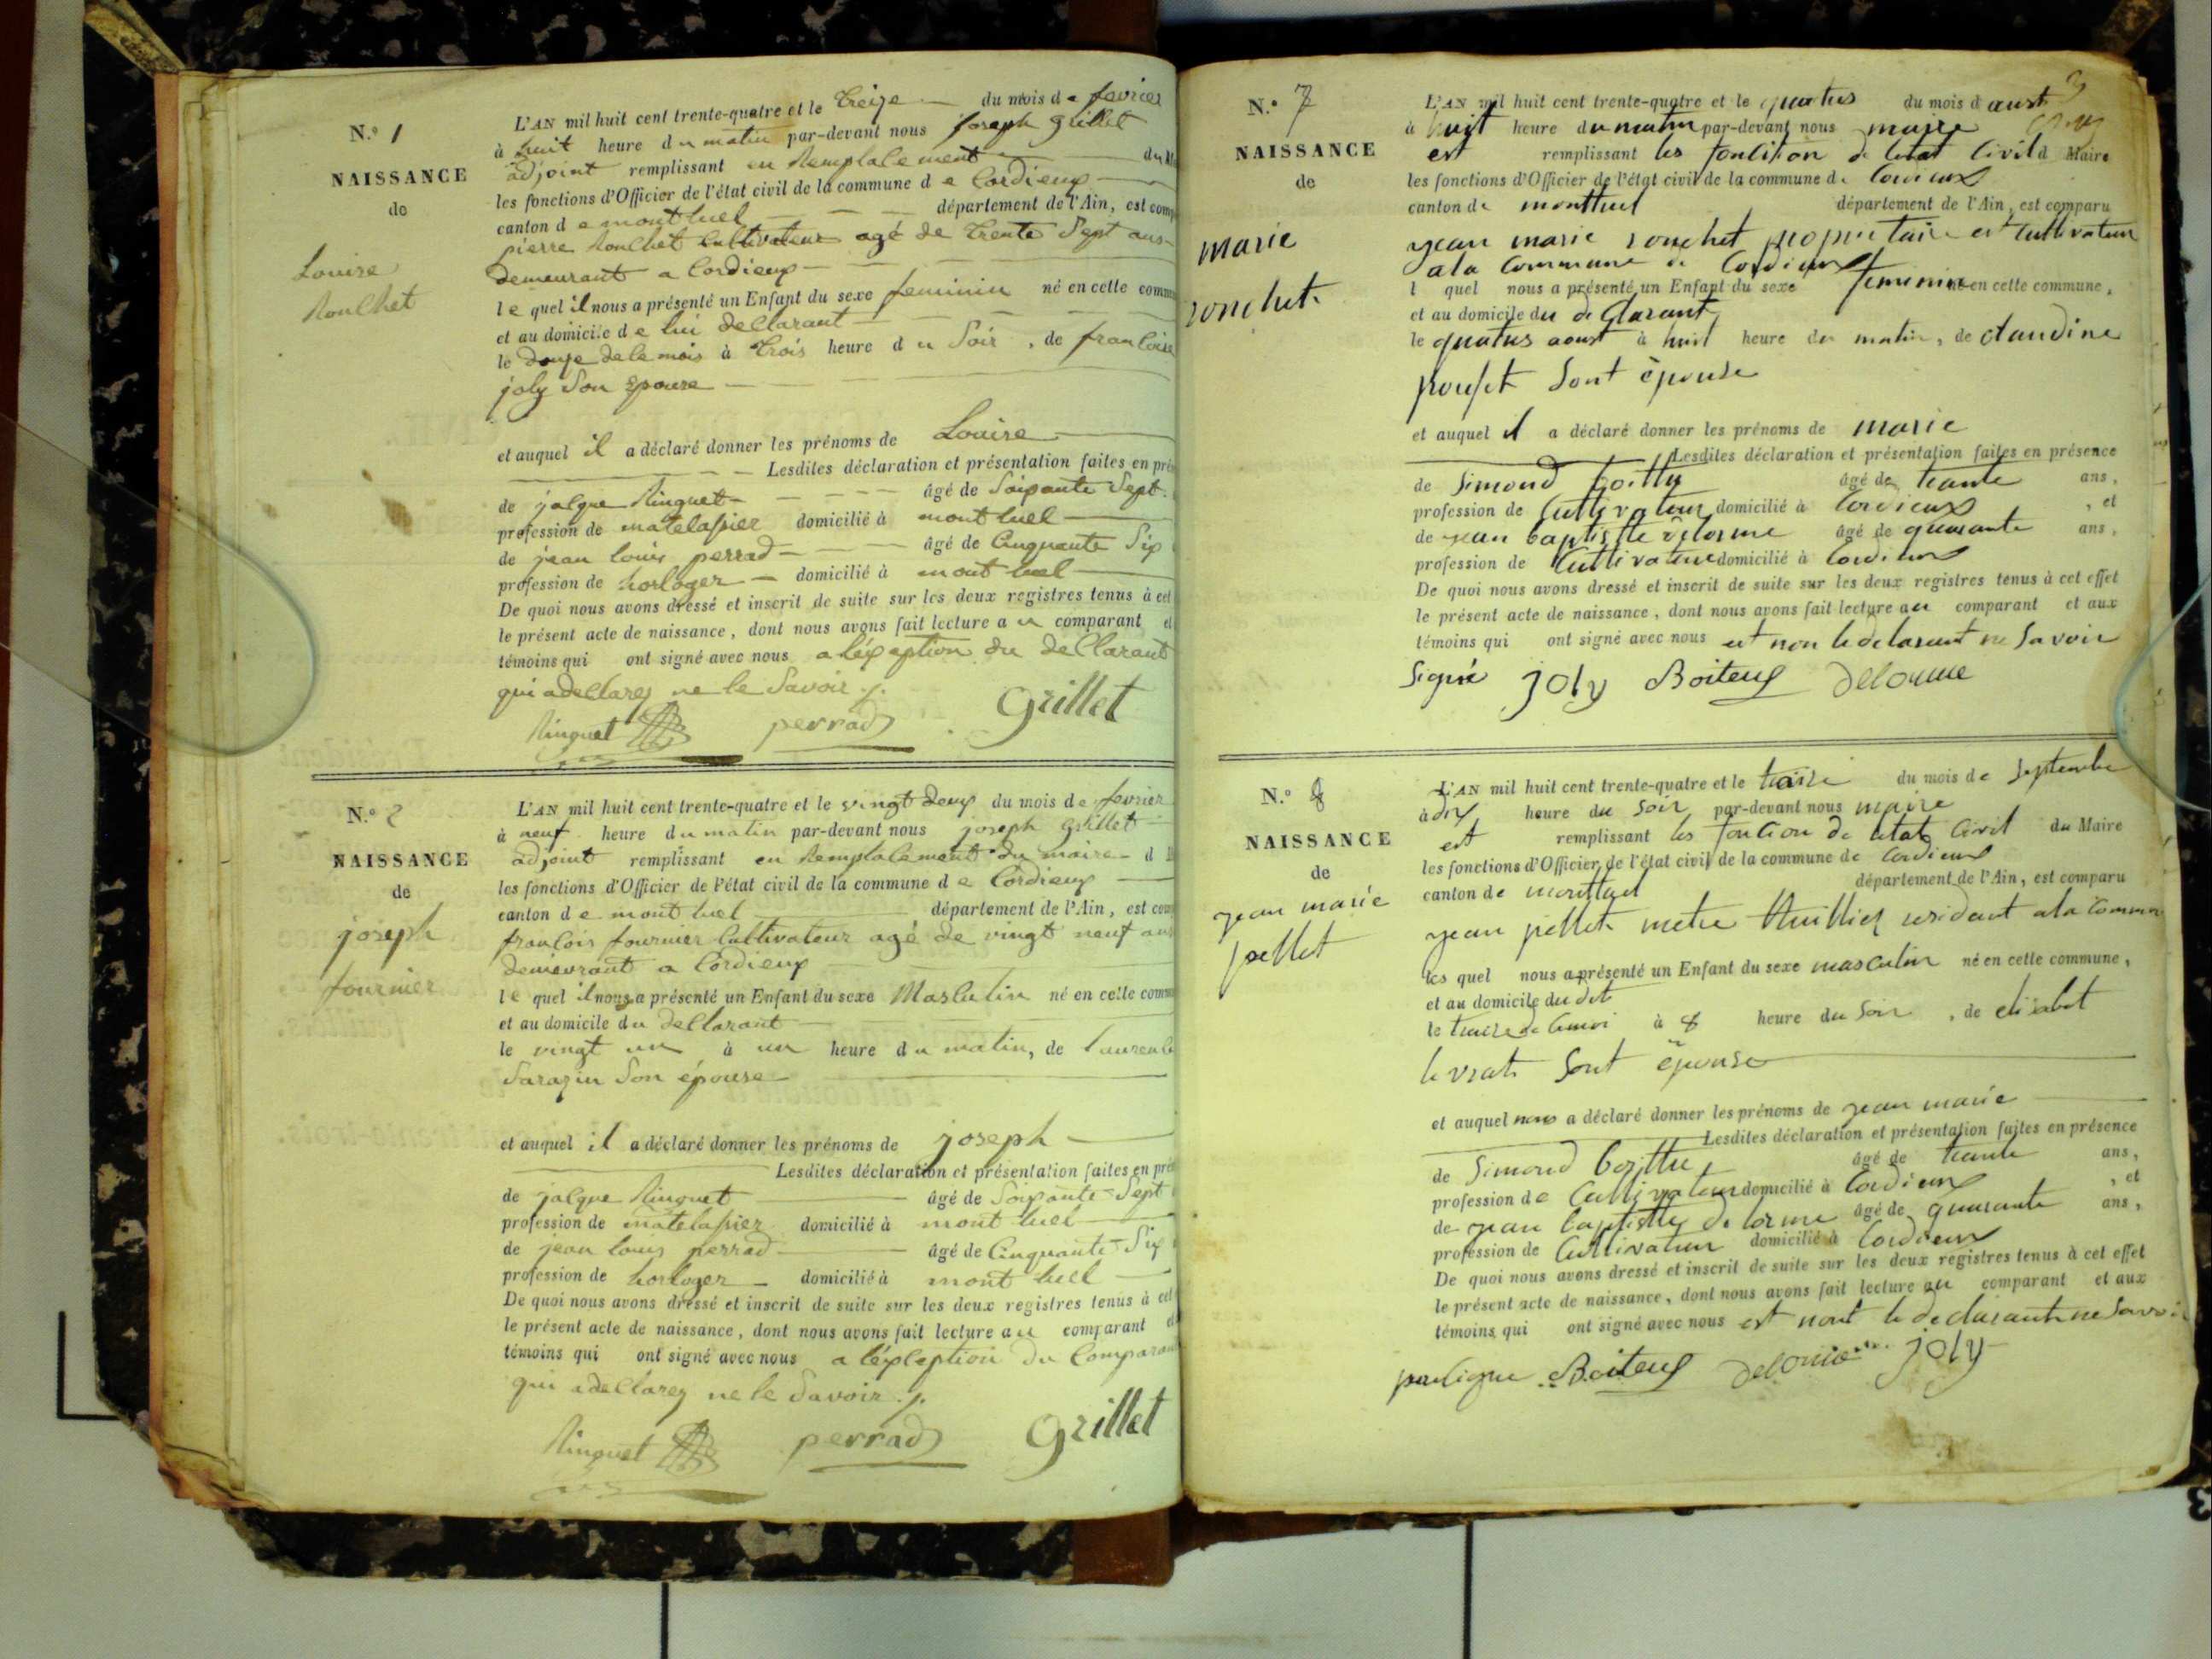 N.º 1
NAISSANCE
de
Louise
Rouchet
L'AN mil huit cent trente-quatre et le treize du mois de fevrier
à huit heure du matin par-devant nous joseph grillet
adjoint remplissant en Remplacement du
les fonctions d'Officier de l'état civil de la commune de Cordieux
canton de montluel département de l'Ain, est comp
pierre Rouchet Cultivateur agé de trente Sept ans
demeurant a Cordieux
lequel il nous a présenté un Enfant du sexe feminin né en cette comm
et au domicile de lui declarant
le douze de ce mois à trois heure du Soir, de francoise
joly Son Epouse
et auquel il a déclaré donner les prénoms de Louise
Lesdites déclaration et présentation faites en pré
de jacque Ringuet âgé de Soixante Sept
profession de matelassier domicilié à mont luel
de jean louis perrad âgé de Cinquante Six
profession de horloger domicilié à mont luel
De quoi nous avons dressé et inscrit de suite sur les deux registres tenus à cet
le présent acte de naissance, dont nous avons fait lecture au comparant et
témoins qui ont signé avec nous a léxception du declarant
qui a declarez ne le Savoir
Ringuet perrad Grillet
N.º 2
NAISSANCE
de
joseph
fournier
L'AN mil huit cent trente-quatre et le vingt deux du mois de fevrier
à neuf heure du matin par-devant nous joseph grillet
adjoint remplissant en Remplacement du maire d
les fonctions d'Officier de l'état civil de la commune de Cordieux
canton de mont luel département de l'Ain, est com
francois fournier Cultivateur agé de vingt neuf ans
demeurant a Cordieux
lequel il nous a présenté un Enfant du sexe Masculin né en cette comm
et au domicile du declarant
le vingt un à un heure du matin, de laurence
Sarazin Son épouse
et auquel il a déclaré donner les prénoms de joseph
Lesdites déclaration et présentation faites en pré
de jacque Ringuet âgé de Soixante Sept
profession de matelassier domicilié à mont luel
de jean louis perrad âgé de Cinquante Six
profession de horloger domicilié à mont luel
De quoi nous avons dressé et inscrit de suite sur les deux registres tenus à cet
le présent acte de naissance, dont nous avons fait lecture au comparant et
témoins qui ont signé avec nous a léxception du Comparant
qui a declarez ne le Savoir
Ringuet perrad Grillet
3
N.º 7
NAISSANCE
de
marie
ronchet
L'AN mil huit cent trente-quatre et le quatus du mois d aust
à huit heure du matin par-devant nous maire
est remplissant les fonction de letat Civil d Maire
les fonctions d'Officier de l'état civil de la commune de Cordieux
canton de montluel département de l'Ain, est comparu
jean marie ronchet propietaire et Cultivateur
a la Commune de Cordieux
l quel nous a présenté un Enfant du sexe feminin né en cette commune,
et au domicile du de Clarant
le quatus aoust à huit heure du matin, de claudine
pouset Sont èpouse
et auquel il a déclaré donner les prénoms de marie
Lesdites déclaration et présentation faites en présence
de Simond âgé de trante ans,
profession de Cultivateur domicilié à Cordieux, et
de jean baptistte delorme âgé de quarante ans,
profession de Cultivateur domicilié à Cordieux
De quoi nous avons dressé et inscrit de suite sur les deux registres tenus à cet effet
le présent acte de naissance, dont nous avons fait lecture au comparant et aux
témoins qui ont signé avec nous est non le declarant ne Savoir
Signé joly Boiteux Delorme
N.º 8
NAISSANCE
de
jean marie
pellet
L'AN mil huit cent trente-quatre et le traise du mois de Septembre
à dix heure du soir par-devant nous maire
est remplissant les fonction de letat Civil du Maire
les fonctions d'Officier de l'état civil de la commune de Cordieux
canton de montluel département de l'Ain, est comparu
jean pellet metre thuillier residant a la Commun
les quel nous a présenté un Enfant du sexe masculin né en cette commune,
et au domicile du dit
le traise de à 8 heure du Soir, de elisabet
levrat Sont épouse
et auquel nous a déclaré donner les prénoms de jean marie
Lesdites déclaration et présentation faites en présence
de Simond âgé de trante ans,
profession de Cultivateur domicilié à Cordieux, et
de jean baptistte de lorme âgé de quarante ans,
profession de Cultivateur domicilié à Cordieux
De quoi nous avons dressé et inscrit de suite sur les deux registres tenus à cet effet
le présent acte de naissance, dont nous avons fait lecture au comparant et aux
témoins qui ont signé avec nous est nont le declarant ne Savoir
Boiteux Delorme joly